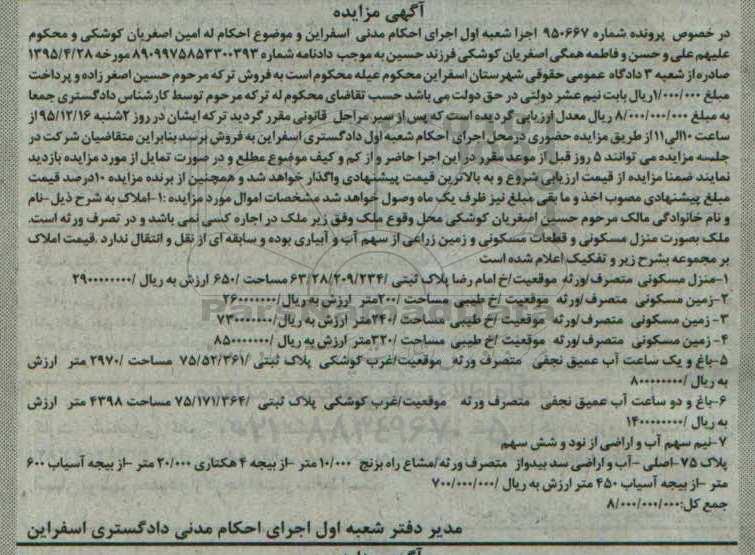 آگهی مزایده
در خصوص پرونده شماره ۹۵۰۶۶۷ اجرا شعبه اول اجرای احکام مدنی اسفراین و موضوع احکام له امین اصغریان کوشکی و محکوم
علیهم علی و حسن و فاطمه همگی اصغریان کوشکی فرزند حسین به موجب دادنامه شماره ۸۹۰۹۹۷۵۸۵۳۳۰۰۳۹۳ مورخه ۱۳۹۵/۴/۲۸
صادره از شعبه ۳ دادگاه عمومی حقوقی شهرستان اسفراین محکوم عیله محکوم است به فروش ترکه مرحوم حسین اصغر زاده و پرداخت
مبلغ ۱/۰۰۰/۰۰۰ریال بابت نیم عشر دولتی در حق دولت می باشد حسب تقاضای محکوم له ترکه مرحوم توسط کارشناس دادگستری جمعا
به مبلغ ۸/۰۰۰/۰۰۰/۰۰۰ ریال معدل ارزیابی گردیده است که پس از سیر مراحل قانونی مقرر گردید ترکه ایشان در روز ۲شنبه ۹۵/۱۲/۱۶ از
ساعت ۱۰الی۱۱ از طریق مزایده حضوری در محل اجرای احکام شعبه اول دادگستری اسفراین به فروش برسد بنابراین متقاضیان شرکت در
جلسه مزایده می توانند ۵ روز قبل از موعد مقرر در این اجرا حاضر و از کم و کیف موضوع مطلع و در صورت تمایل از مورد مزایده بازدید
نمایند ضمنا مزایده از قیمت ارزیابی شروع و به بالاترین قیمت پیشنهادی واگذار خواهد شد و همچنین از برنده مزایده ۱۰درصد قیمت
مبلغ پیشنهادی مصوب اخذ و ما بقی مبلغ نیز ظرف یک ماه وصول خواهد شد مشخصات اموال مورد مزایده :۱-املاک به شرح ذیل -نام
و نام خانوادگی مالک مرحوم حسین اصغریان کوشکی محل وقوع ملک وفق زیر ملک در اجاره کسی نمی باشد و در تصرف ورثه است.
ملک بصورت منزل مسکونی و قطعات مسکونی و زمین زراعی از سهم آب و آبیاری بوده و سابقه ای از نقل و انتقال ندارد .قیمت املاک
بر مجموعه بشرح زیر و تفکیک اعلام شده است
۱-منزل مسکونی متصرف/ورثه موقعیت/خ امام رضا پلاک ثبتی /۶۳/۲۸/۲۰۹/۲۳۴ مساحت /۶۵۰ ارزش به ریال /۲۹۰۰۰۰۰۰۰۰
۲-زمین مسکونی متصرف/ورثه موقعیت /خ طیبی مساحت /۲۰۰متر ارزش به ریال/۲۶۰۰۰۰۰۰۰
۳- زمین مسکونی متصرف/ورثه موقعیت /خ طیبی مساحت /۲۴۰متر ارزش به ریال/۷۳۰۰۰۰۰۰۰
۴- زمین مسکونی متصرف/ورثه موقعیت /خ طیبی مساحت /۳۲۰متر ارزش به ریال /۸۵۰۰۰۰۰۰۰
۵-باغ و یک ساعت آب عمیق نجفی متصرف ورثه موقعیت/غرب کوشکی پلاک ثبتی /۷۵/۵۲/۳۶۱ مساحت /۲۹۷۰ متر ارزش
به ریال /۸۰۰۰۰۰۰۰۰
۶-باغ و دو ساعت آب عمیق نجفی متصرف ورثه موقعیت/غرب کوشکی پلاک ثبتی /۷۵/۱۷۱/۳۶۴ مساحت ۴۳۹۸ متر ارزش
به ریال /۱۴۰۰۰۰۰۰۰۰
۷-نیم سهم آب و اراضی از نود و شش سهم
پلاک ۷۵-اصلی -آب و اراضی سد بیدواز متصرف ورثه/مشاع راه بزنج ۱۰/۰۰۰ متر -از بیجه ۴ هکتاری ۲۰/۰۰۰ متر -از بیجه آسیاب ۶۰۰
متر -از بیجه آسیاب ۴۵۰ متر ارزش به ریال /۷۰۰/۰۰۰/۰۰۰
جمع کل:۸/۰۰۰/۰۰۰/۰۰۰
مدیر دفتر شعبه اول اجرای احکام مدنی دادگستری اسفراین